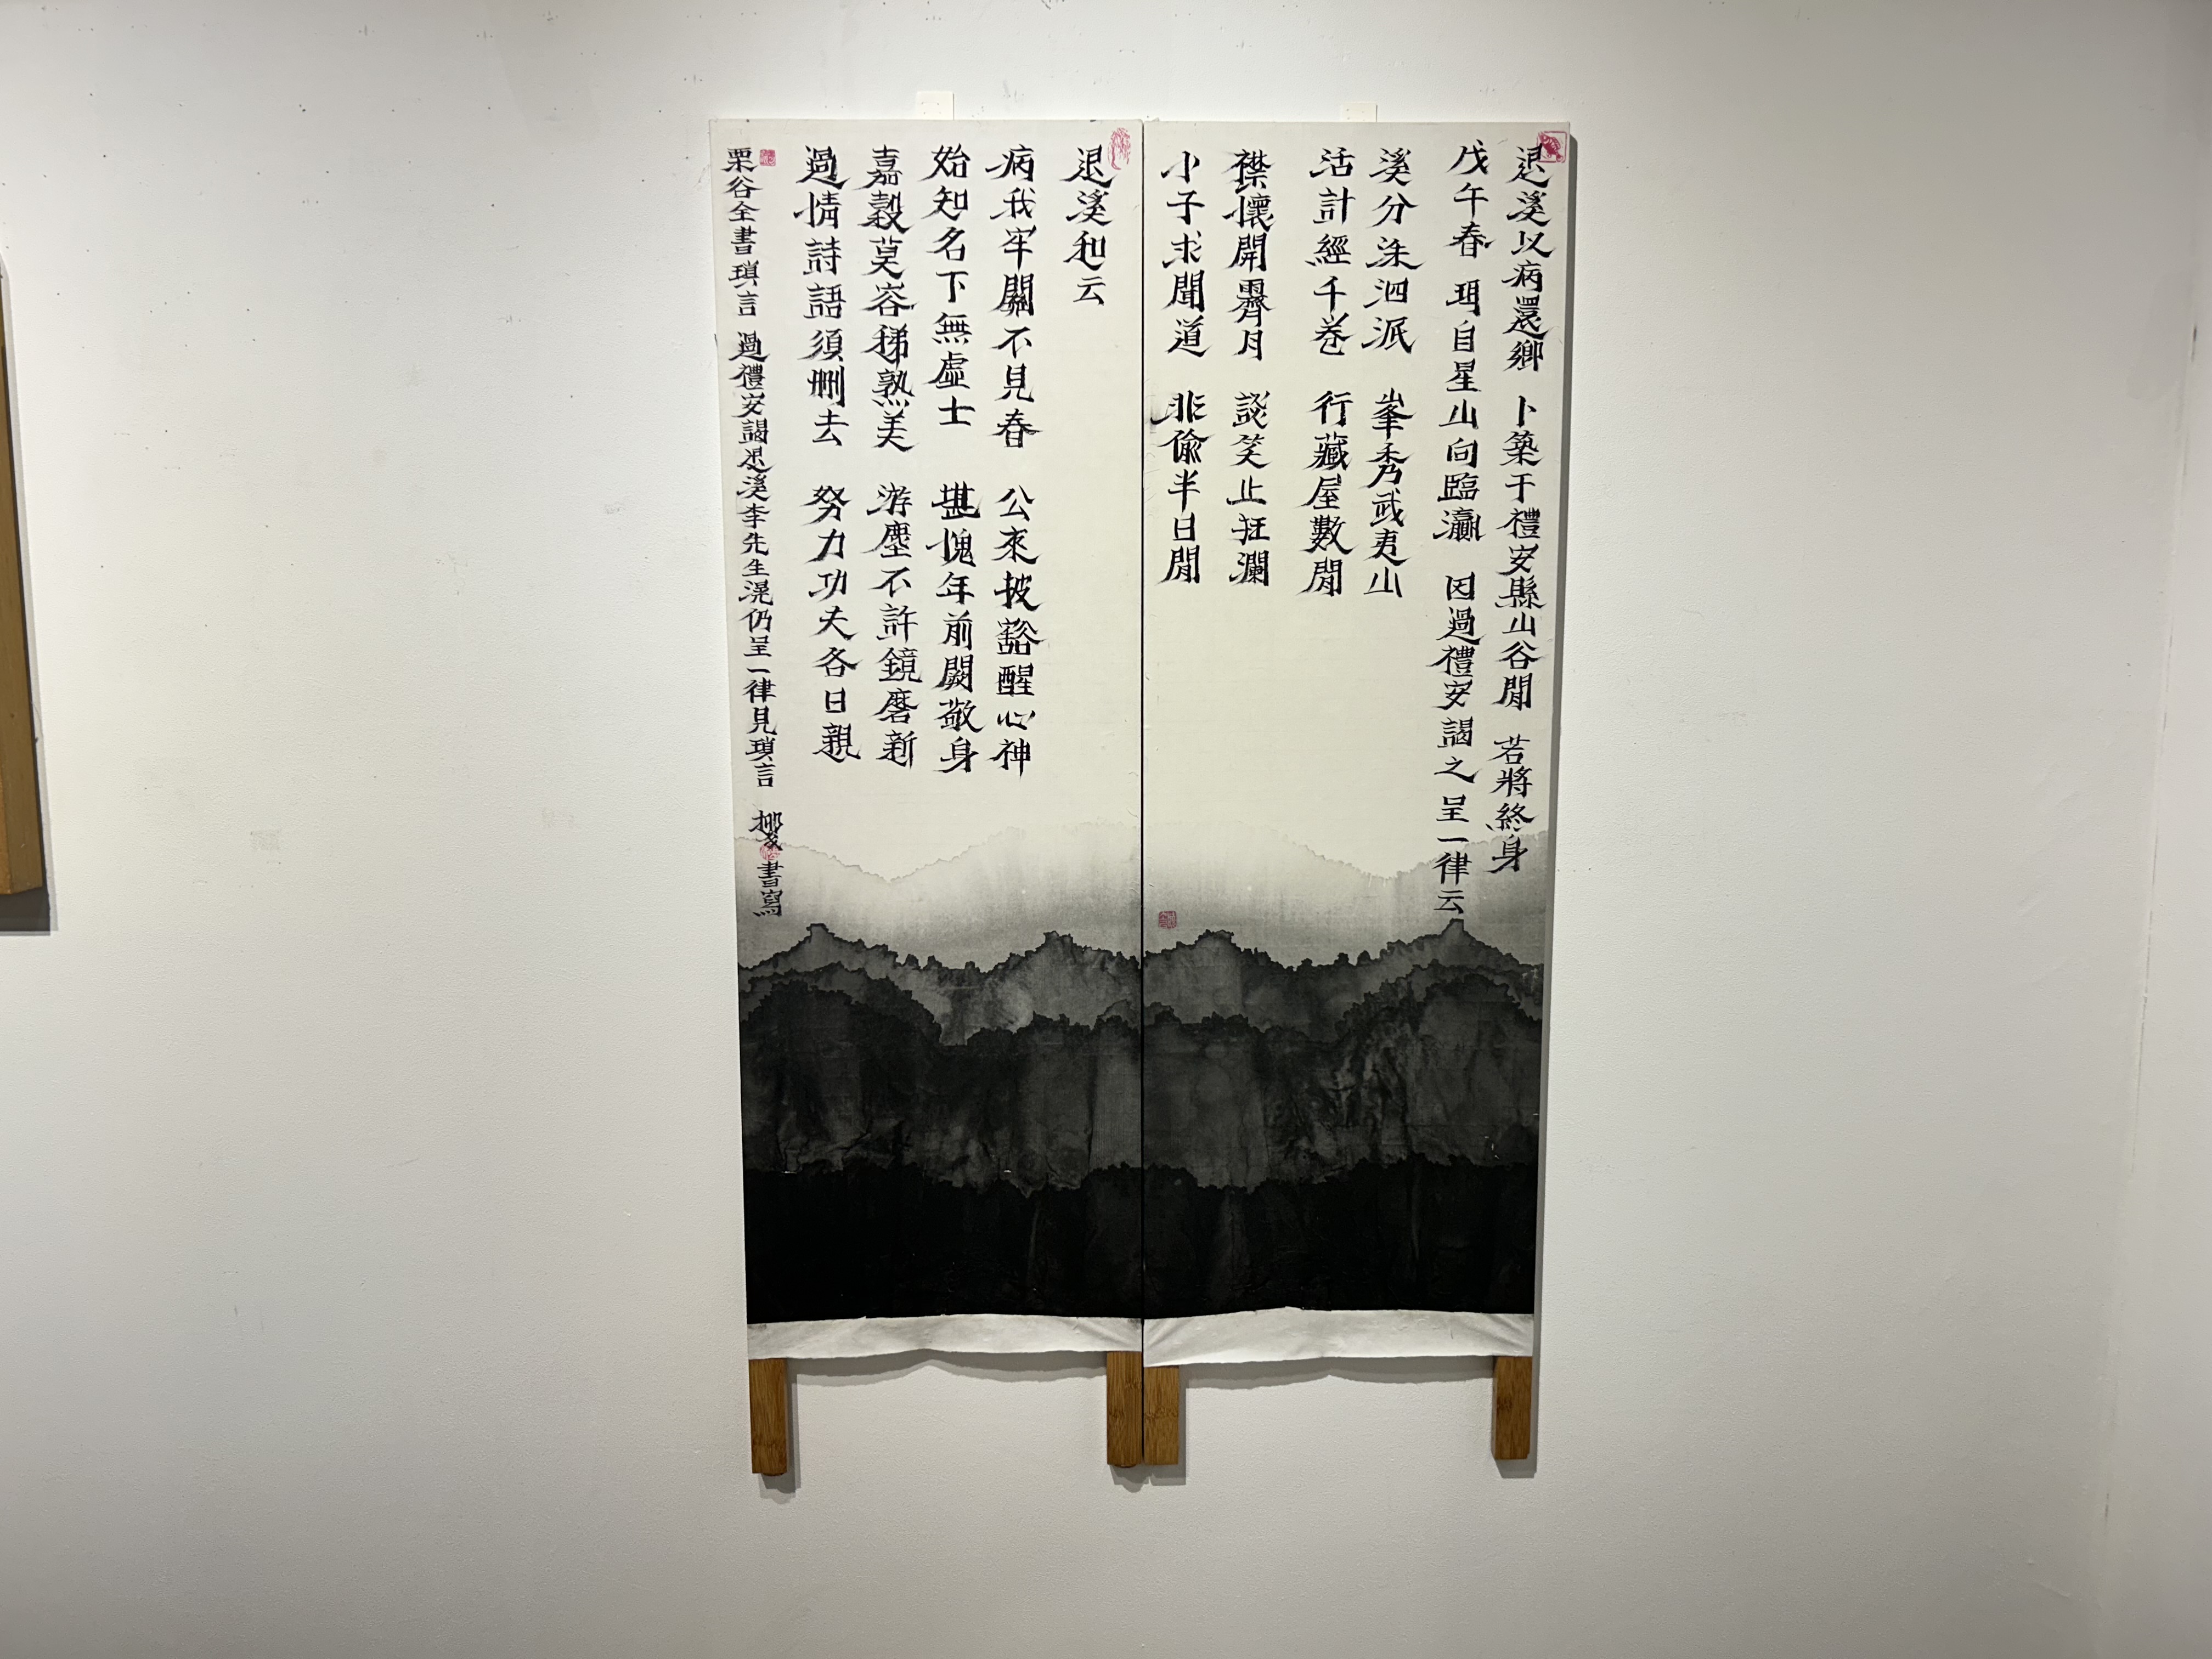 退溪以病還鄉 卜築于禮安縣山谷間 若將終身
戊午春 珥自星山向臨瀛 因過禮安謁之 呈一律云
溪分洙泗派 峯秀武夷山
活計經千卷 行藏屋數間
襟懷開霽月 談笑止狂瀾
小子求聞道 非偸半日閒
退溪和云
病我牢關不見春 公來披豁醒心神
始知名下無虛士 堪愧年前闕敬身
嘉穀莫容稊熟美 游塵不許鏡磨新
過情詩語須刪去 努力功夫各日親
栗谷全書瑣言 過禮安謁退溪李先生滉仍呈一律見瑣言 書寫